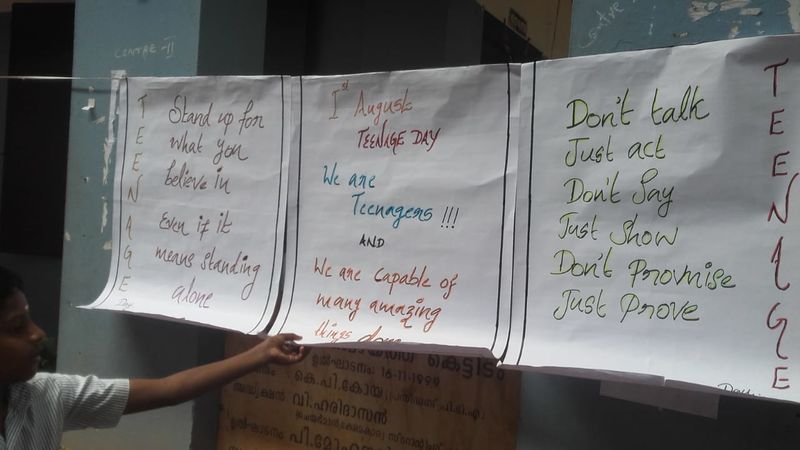 CENTRE-II
TEENAGE
Stand up for
what you
believe in
Even if it
means standing
alone
1st August
TEENAGE DAY
We are
Teenagers !!!
AND
We are capable of
many amazing
things
Don't talk
Just act
Don't Say
Just Show
Don't Promise
Just Prove
TEENAGE
കെട്ടിടം
ഉൽഘാടനം: 16-11-1999
കെ.പി.കോയ
അദ്ധ്യക്ഷൻ
വി.ഹരിദാസൻ
ഉൽഘാടനം